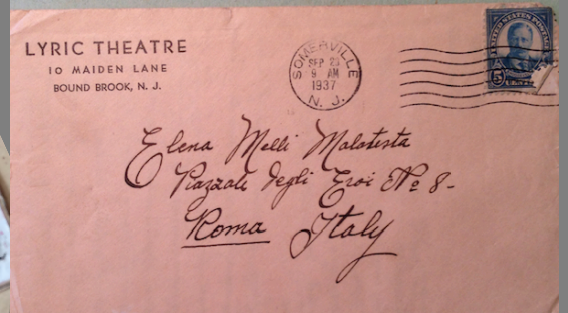 LYRIC THEATRE
10 MAIDEN LANE
BOUND BROOK, N. J.
SOMERVILLE
SEP 23
9 AM
1937
N. J.
UNITED STATES POSTAGE
5
CENTS
Elena Melli Malatesta
Piazzale degli Eroi No 8-
Roma Italy